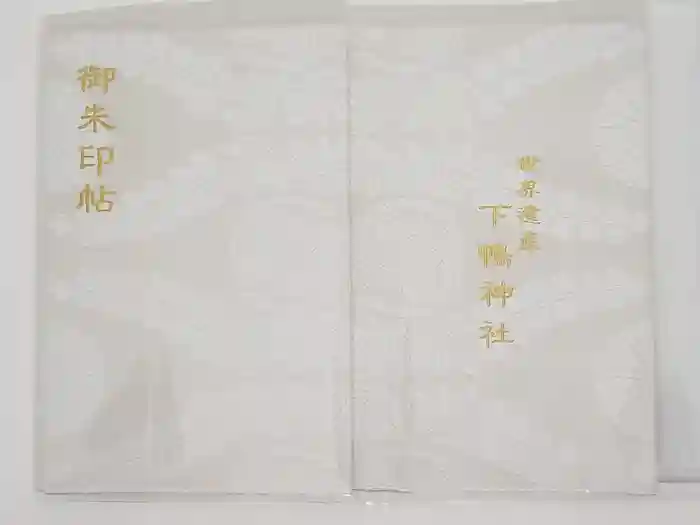 御朱印帖
世界遺産
下鴨神社